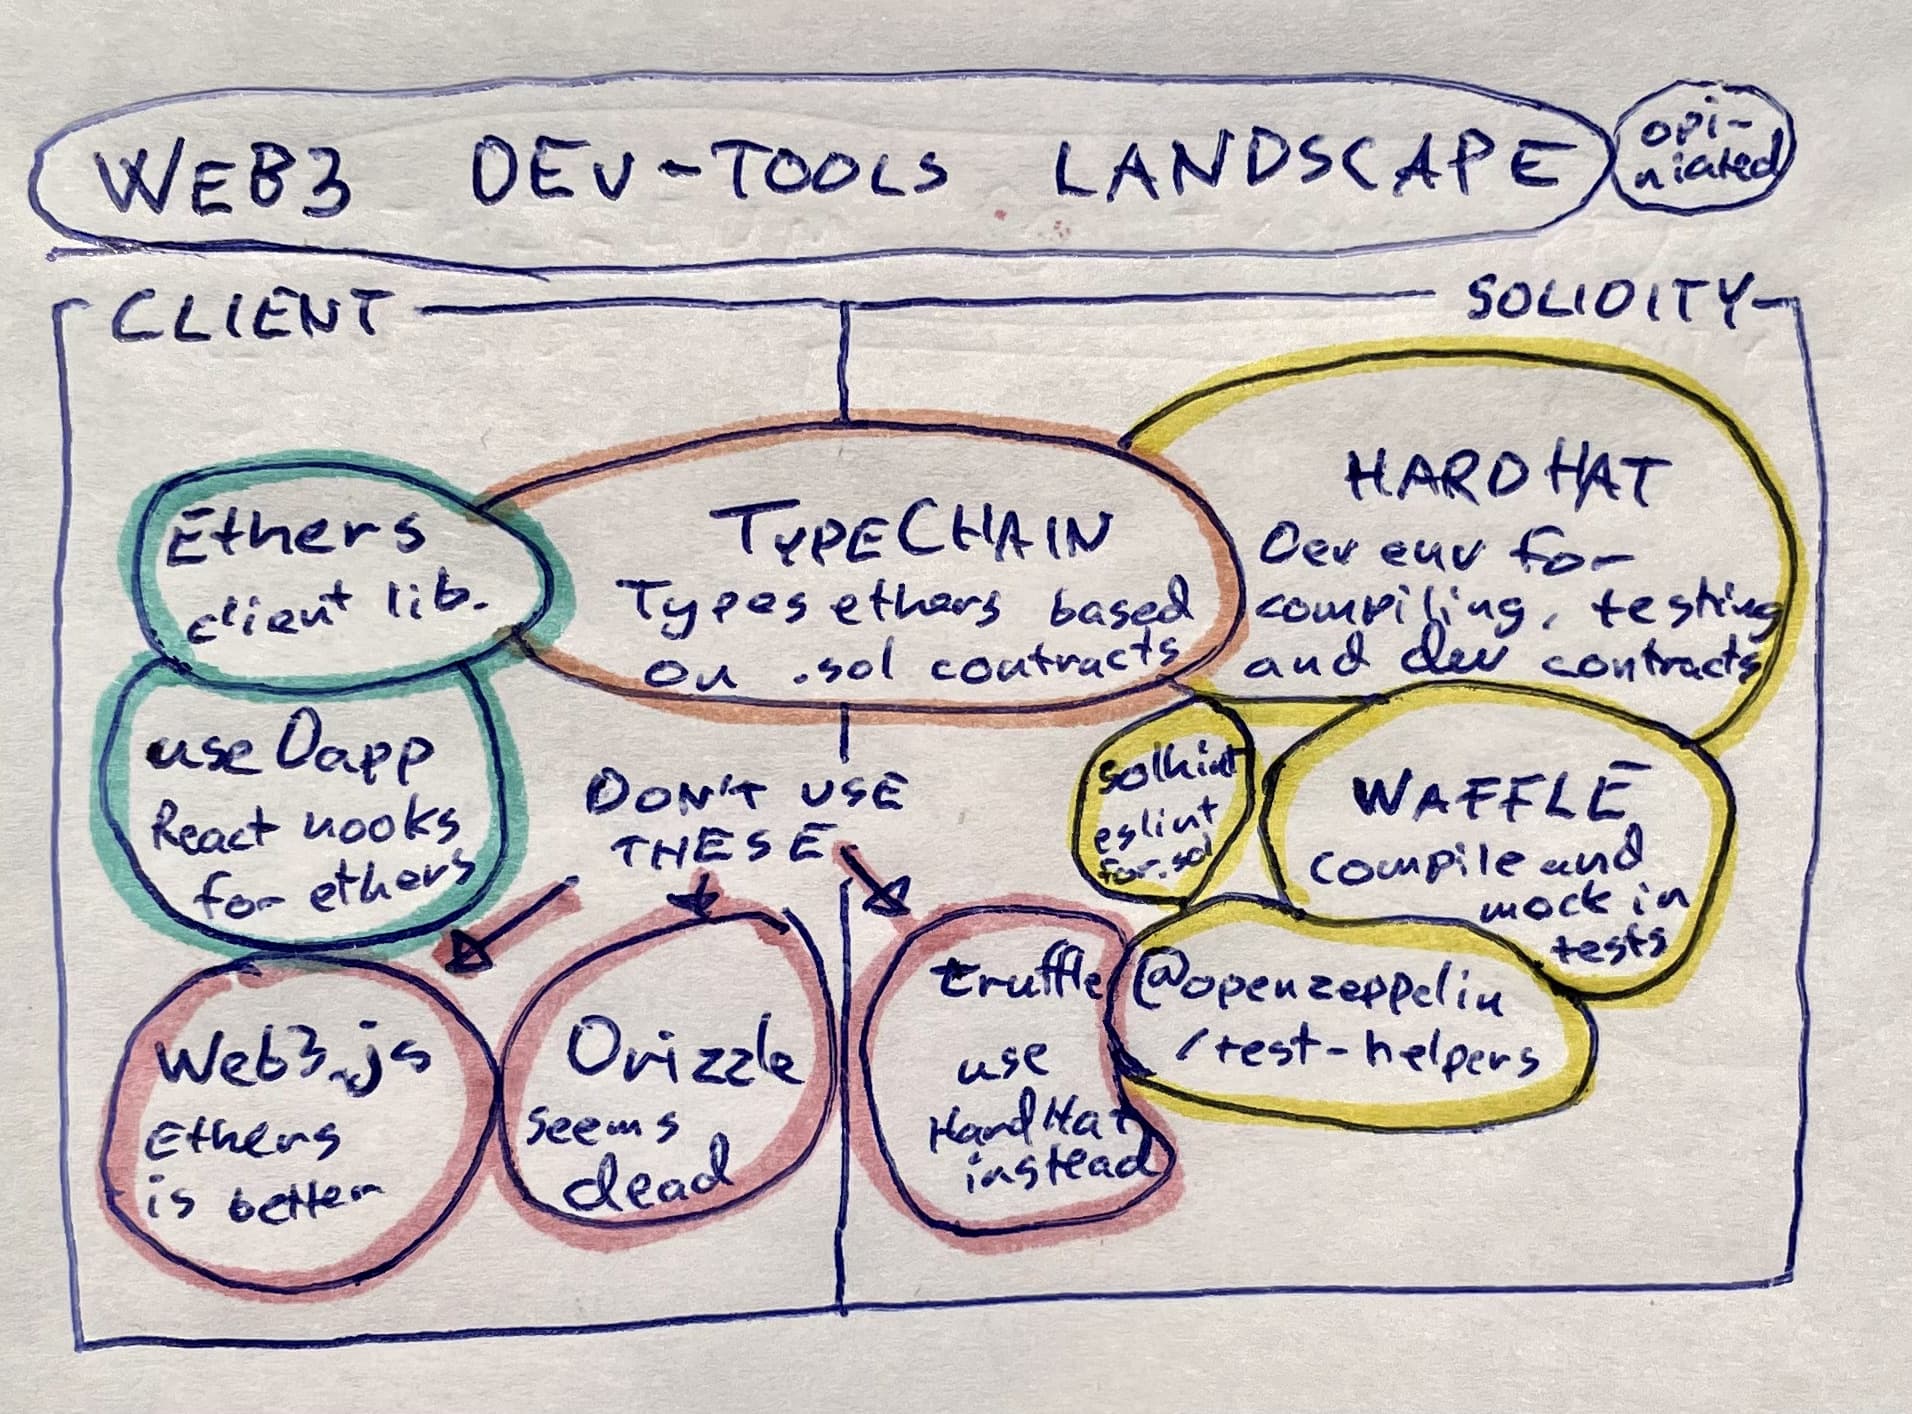 WEB3 DEV-TOOLS LANDSCAPE
opi-
niated
CLIENT
SOLIDITY
Ethers
client lib.
TYPECHAIN
Types ethers based
on .sol contracts
HARDHAT
Dev env for
compiling, testing
and dev contracts
useDapp
React hooks
for ethers
DON'T USE
THESE
solhint
eslint
for .sol
WAFFLE
compile and
mock in
tests
Web3.js
Ethers
is better
Drizzle
seems
dead
truffle
use
HardHat
instead
@openzeppelin
/test-helpers